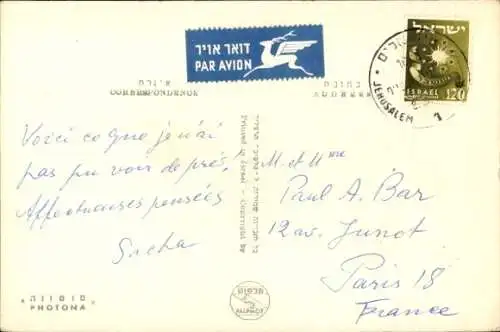 דואר אויר
PAR AVION
ישראל
ISRAEL
120
JERUSALEM
Voici ce que je n'ai
pas pu voir de près!
Affectueuses pensées
Sacha
M. et Mme
Paul A. Bar
12 av. Junot
Paris 18
France
PHOTONA
PALPHOT